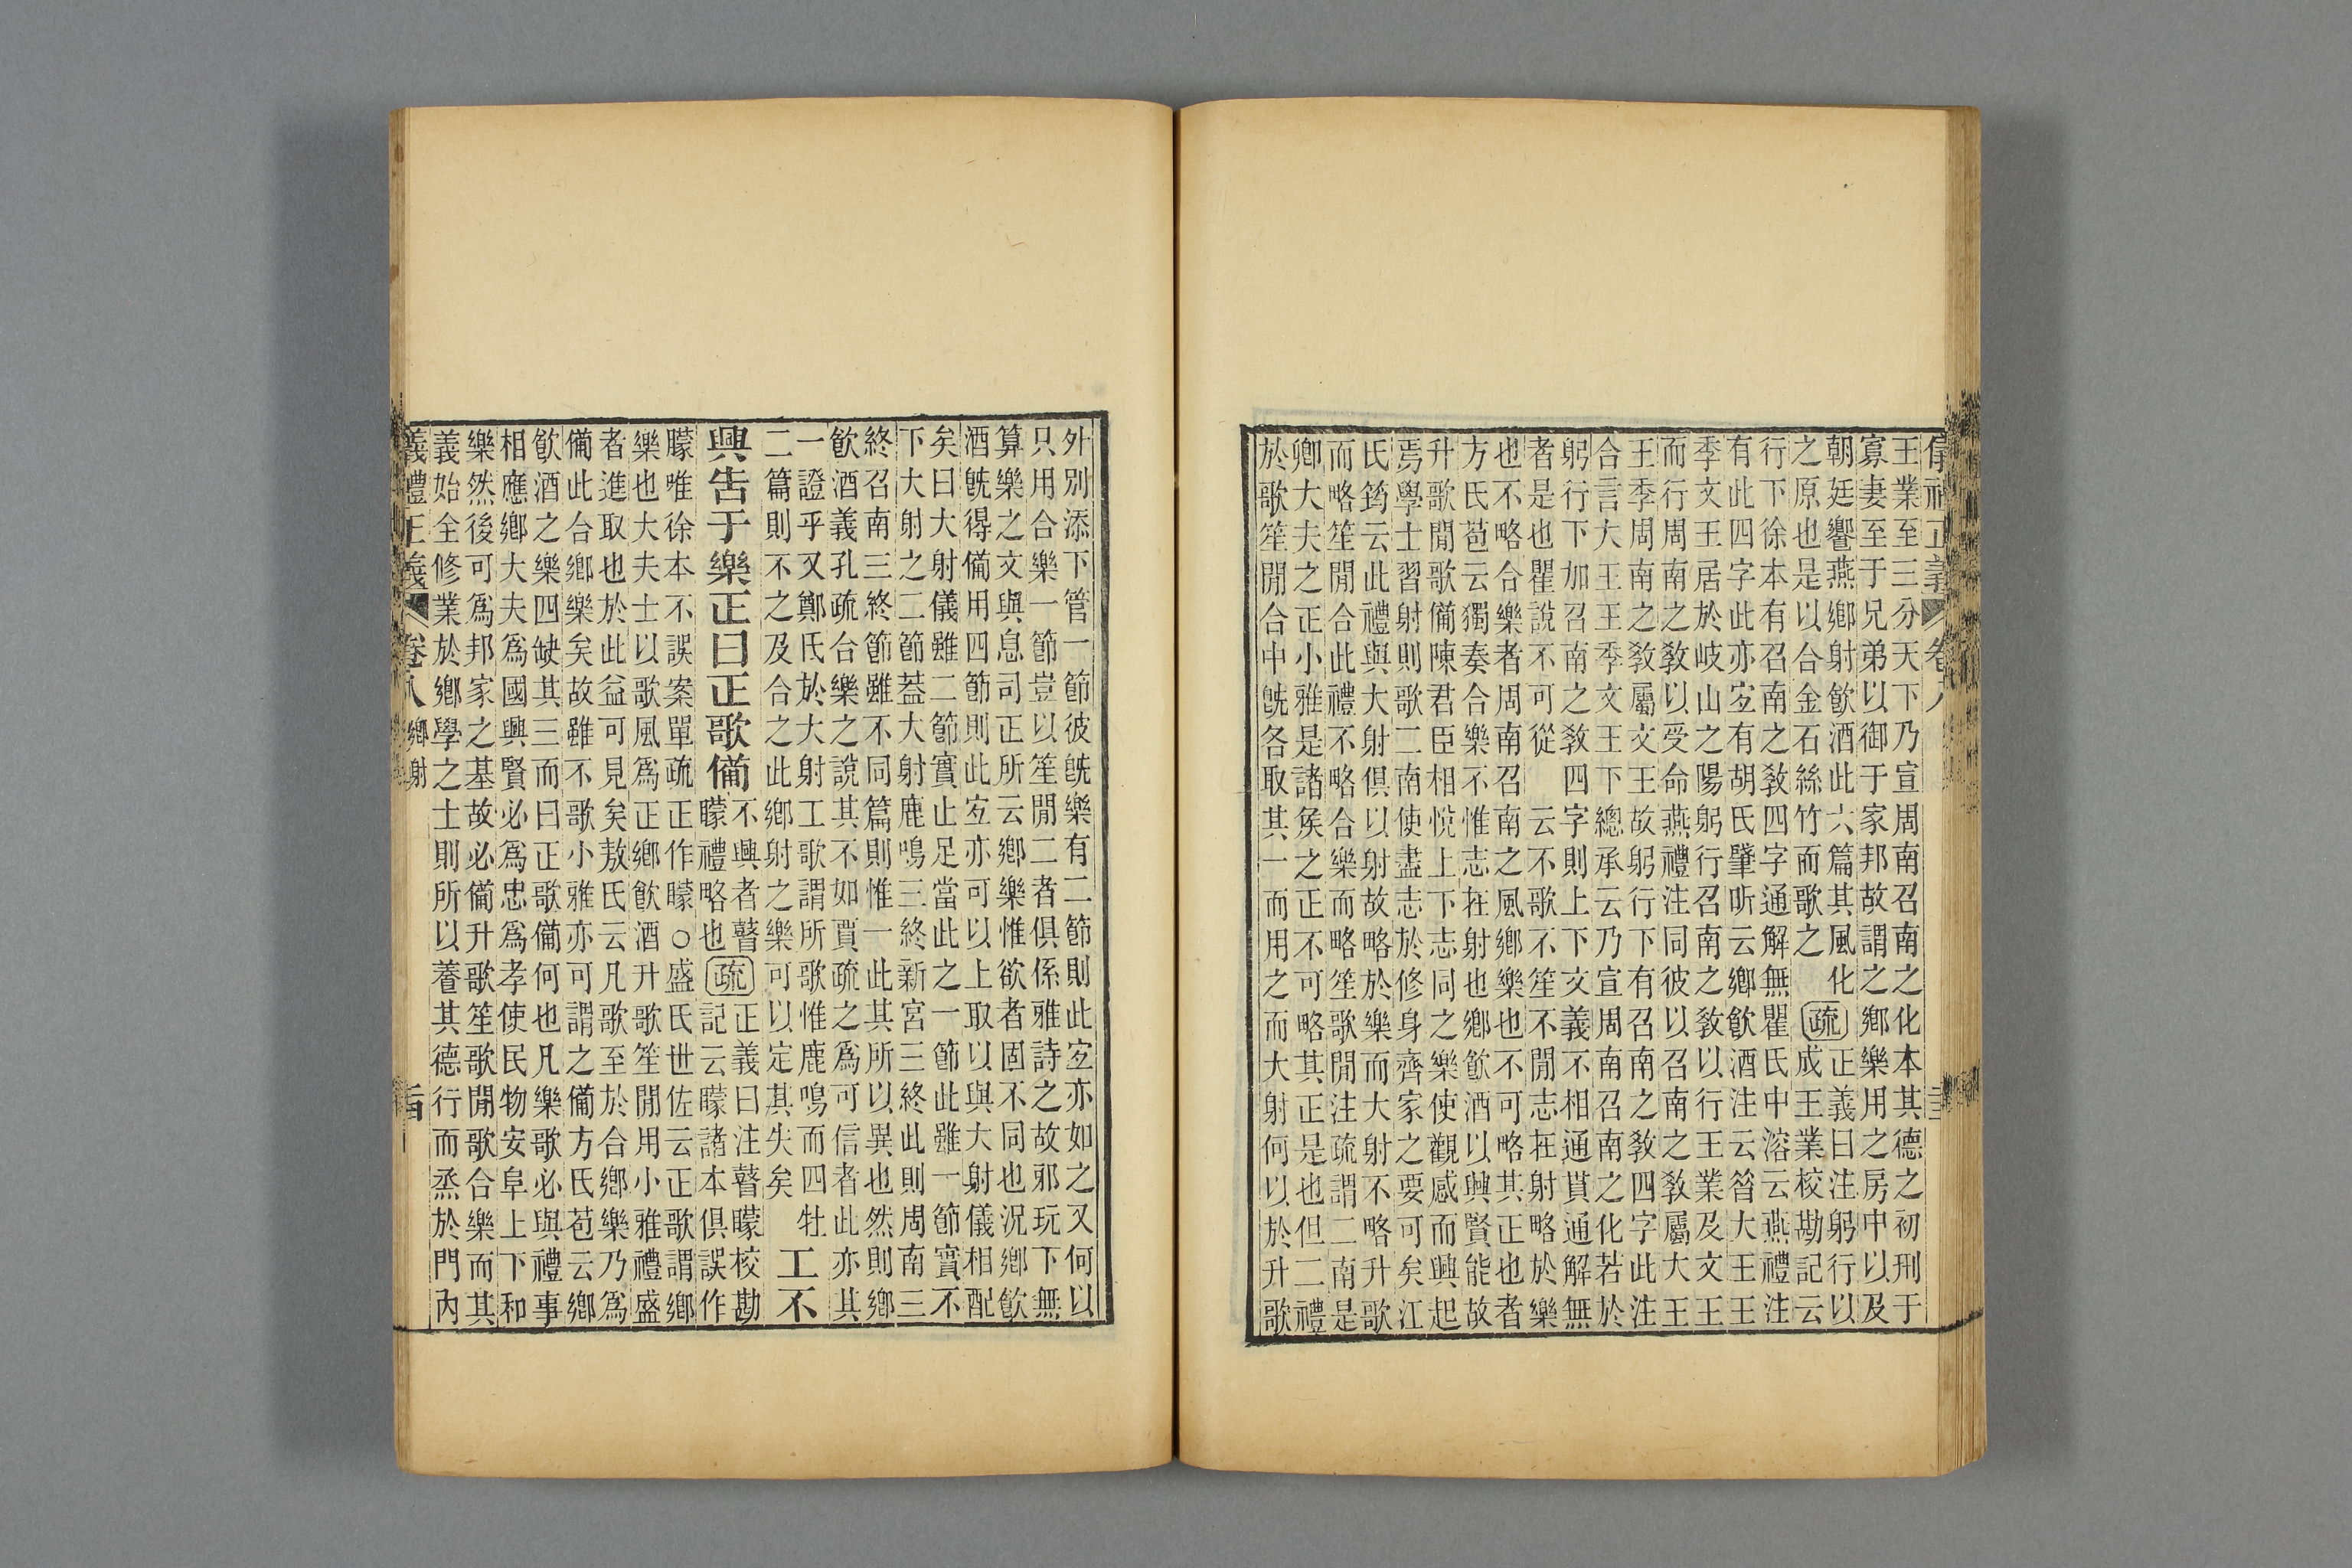 王業至三分天下乃宣周南召南之化本其德之初刑于
寡妻至于兄弟以御于家邦故謂之鄉樂用之房中以及
朝廷饗燕鄉射飮酒此六篇其風化
之原也是以合金石絲竹而歌之
疏
正義曰注躬行以
成王業校勘記云
行下徐本有召南之敎四字通解無瞿氏中溶云燕禮注
有此四字此亦宐有胡氏肇昕云鄉飮酒注云昝大王王
季文王居於岐山之陽躬行召南之敎以行王業及文王
而行周南之敎以受命燕禮注同彼以召南之敎屬大王
王季周南之敎屬文王故躬行下有召南之敎四字此注
合言大王王季文王下總承云乃宣周南召南之化若於
躬行下加召南之敎四字則上下文義不相通貰通解無
者是也瞿說不可從　云不歌不笙不閒志在射略於樂
也不略合樂者周南召南之風鄉樂也不可略其正也者
方氏苞云獨奏合樂不惟志在射也鄉飮酒以興賢能故
升歌閒歌備陳君臣相悅上下志同之樂使觀感而興起
焉學士習射則歌二南使盡志於修身齊家之要可矣江
氏筠云此禮與大射俱以射故略於樂而大射不略升歌
而略笙閒合此禮不略合樂而略笙歌閒注疏謂二南是
鄉大夫之正小雅是諸矦之正不可略其正是也但二禮
於歌笙閒合中旣各取其一而用之而大射何以於升歌
外別添下管一節彼旣樂有二節則此宐亦如之又何以
只用合樂一節豈以笙閒二者俱係雅詩之故邪玩下無
算樂之文與息司正所云鄉樂惟欲者固不同也況鄉飮
酒旣得備用四節則此宐亦可以上取以與大射儀相配
矣曰大射儀雖二節實止足當此之一節此雖一節實不
下大射之二節蓋大射鹿鳴三終新宮三終此則周南三
終召南三終節雖不同篇則惟一此其所以異也然則鄉
飮酒義孔疏合樂之說其不如賈疏之爲可信者此亦其
一證乎又鄭氏於大射工歌謂所歌惟鹿鳴而四牡
二篇則不之及合之此鄉射之樂可以定其失矣
工不
興告于樂正曰正歌備
不興者瞽
矇禮略也
疏
正義曰注瞽矇校勘
記云矇諸本俱誤作
矇唯徐本不誤案單疏正作矇○盛氏世佐云正歌謂鄉
樂也大夫士以歌風爲正鄉飮酒升歌笙閒用小雅禮盛
者進取也於此益可見矣敖氏云凡歌至於合鄉樂乃爲
備此合鄉樂矣故雖不歌小雅亦可謂之備方氏苞云鄉
飮酒之樂四缺其三而曰正歌備何也凡樂歌必與禮事
相應鄉大夫爲國興賢必爲忠爲孝使民物安阜上下和
樂然後可爲邦家之基故必備升歌笙歌閒歌合樂而其
義始全修業於鄉學之士則所以養其德行而烝於門內
義禮正義　卷八　鄉射